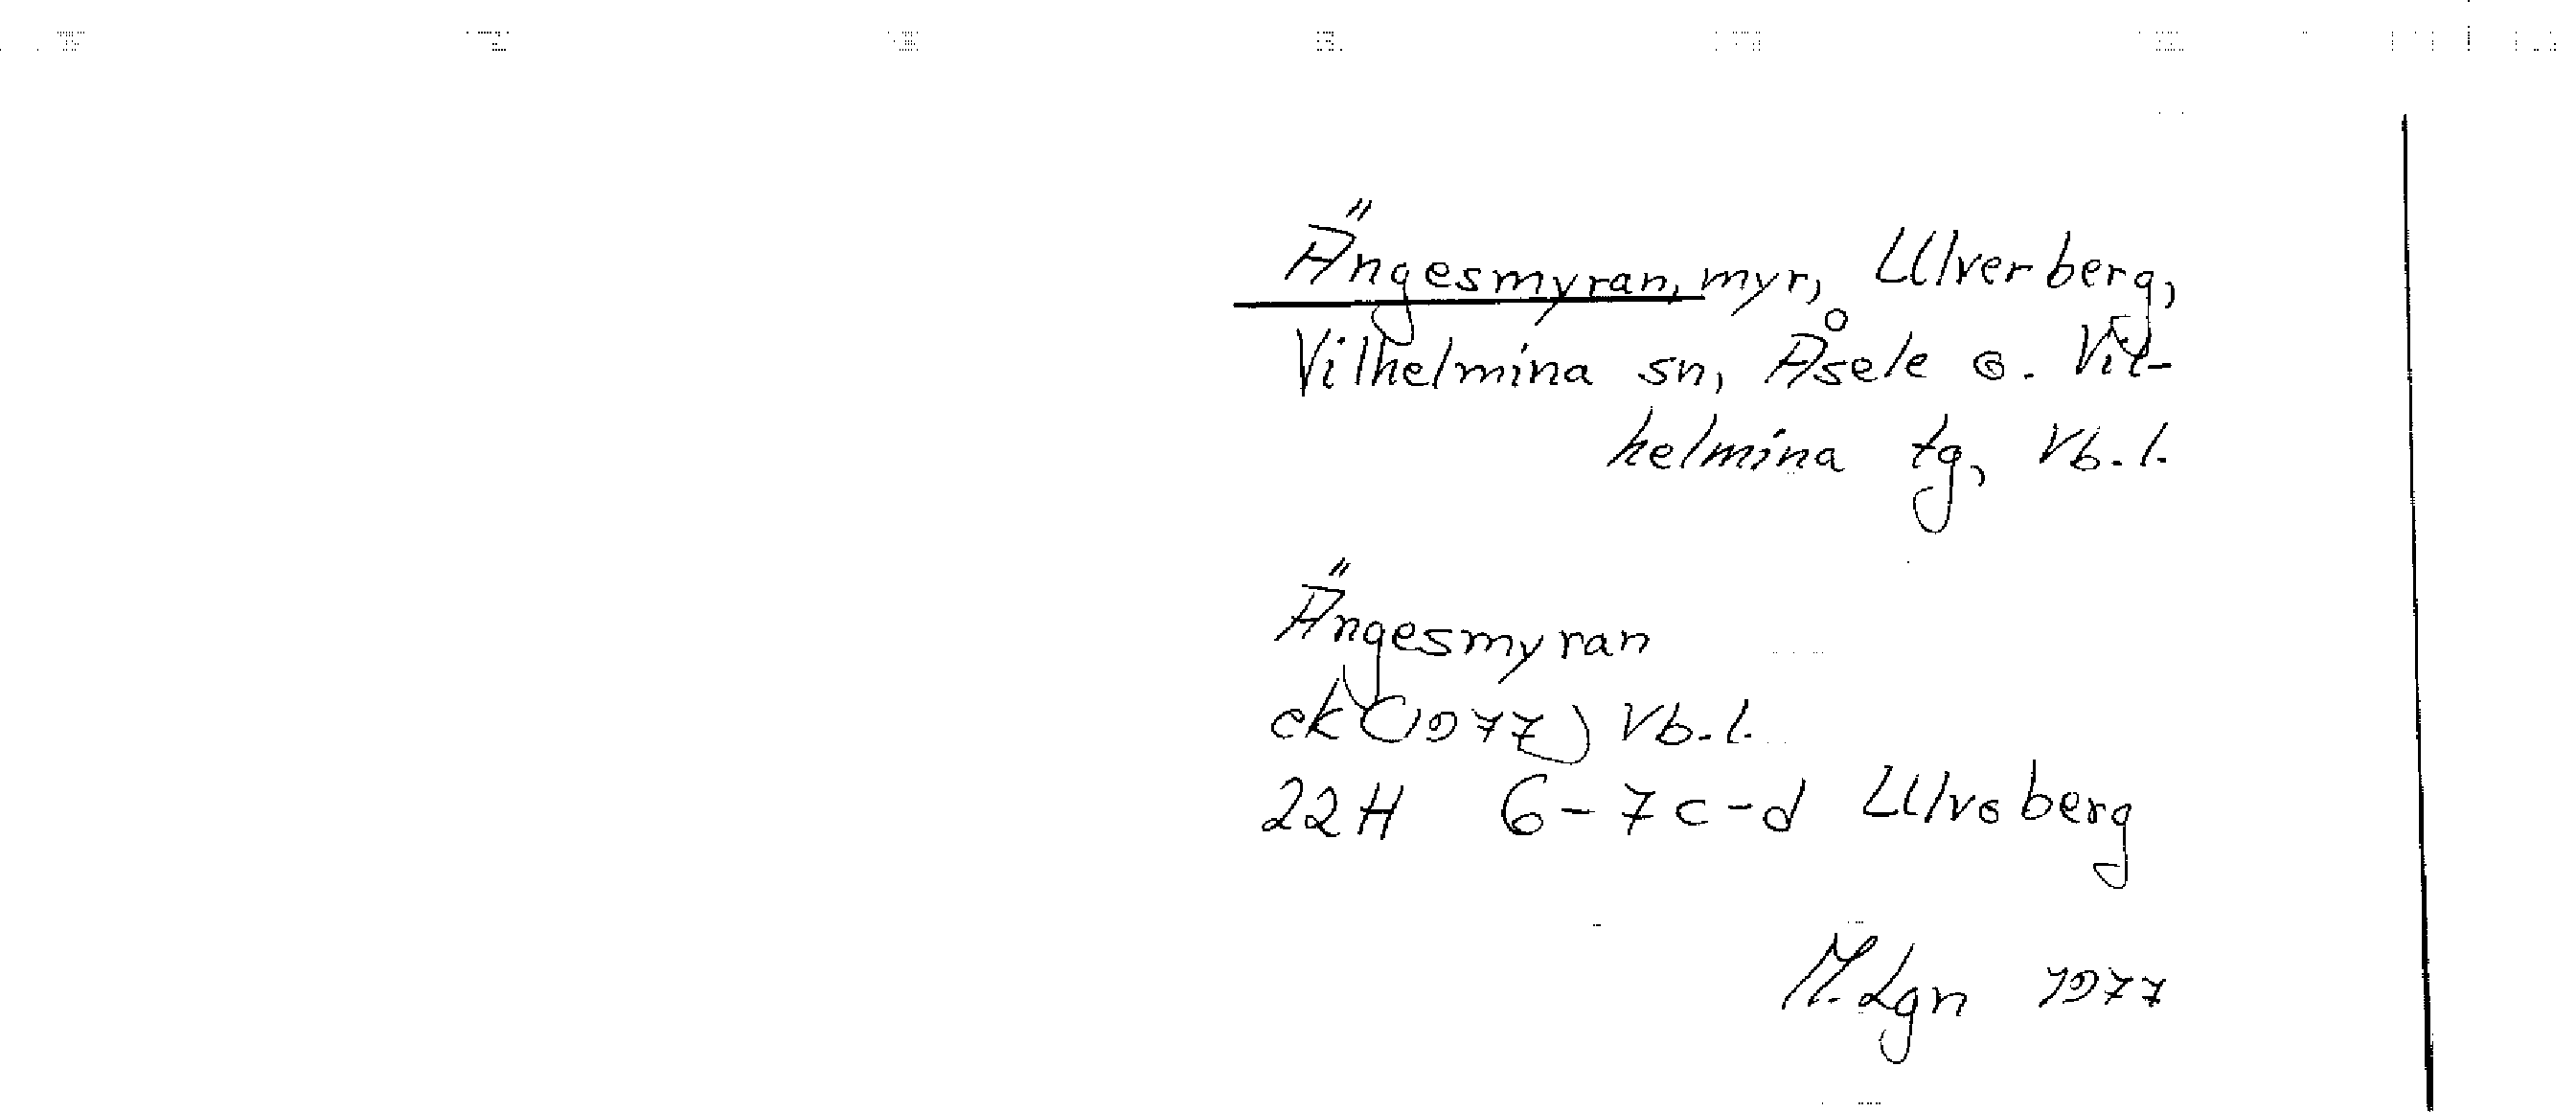 Ängesmyran, myr, Ulverberg,
Vilhelmina sn, Åsele o. Vil-
helmina tg, Vb.l.
Ängesmyran
ek (1977) Vb.l.
22H 6-7c-d Ulvoberg
M. Lgn 1977